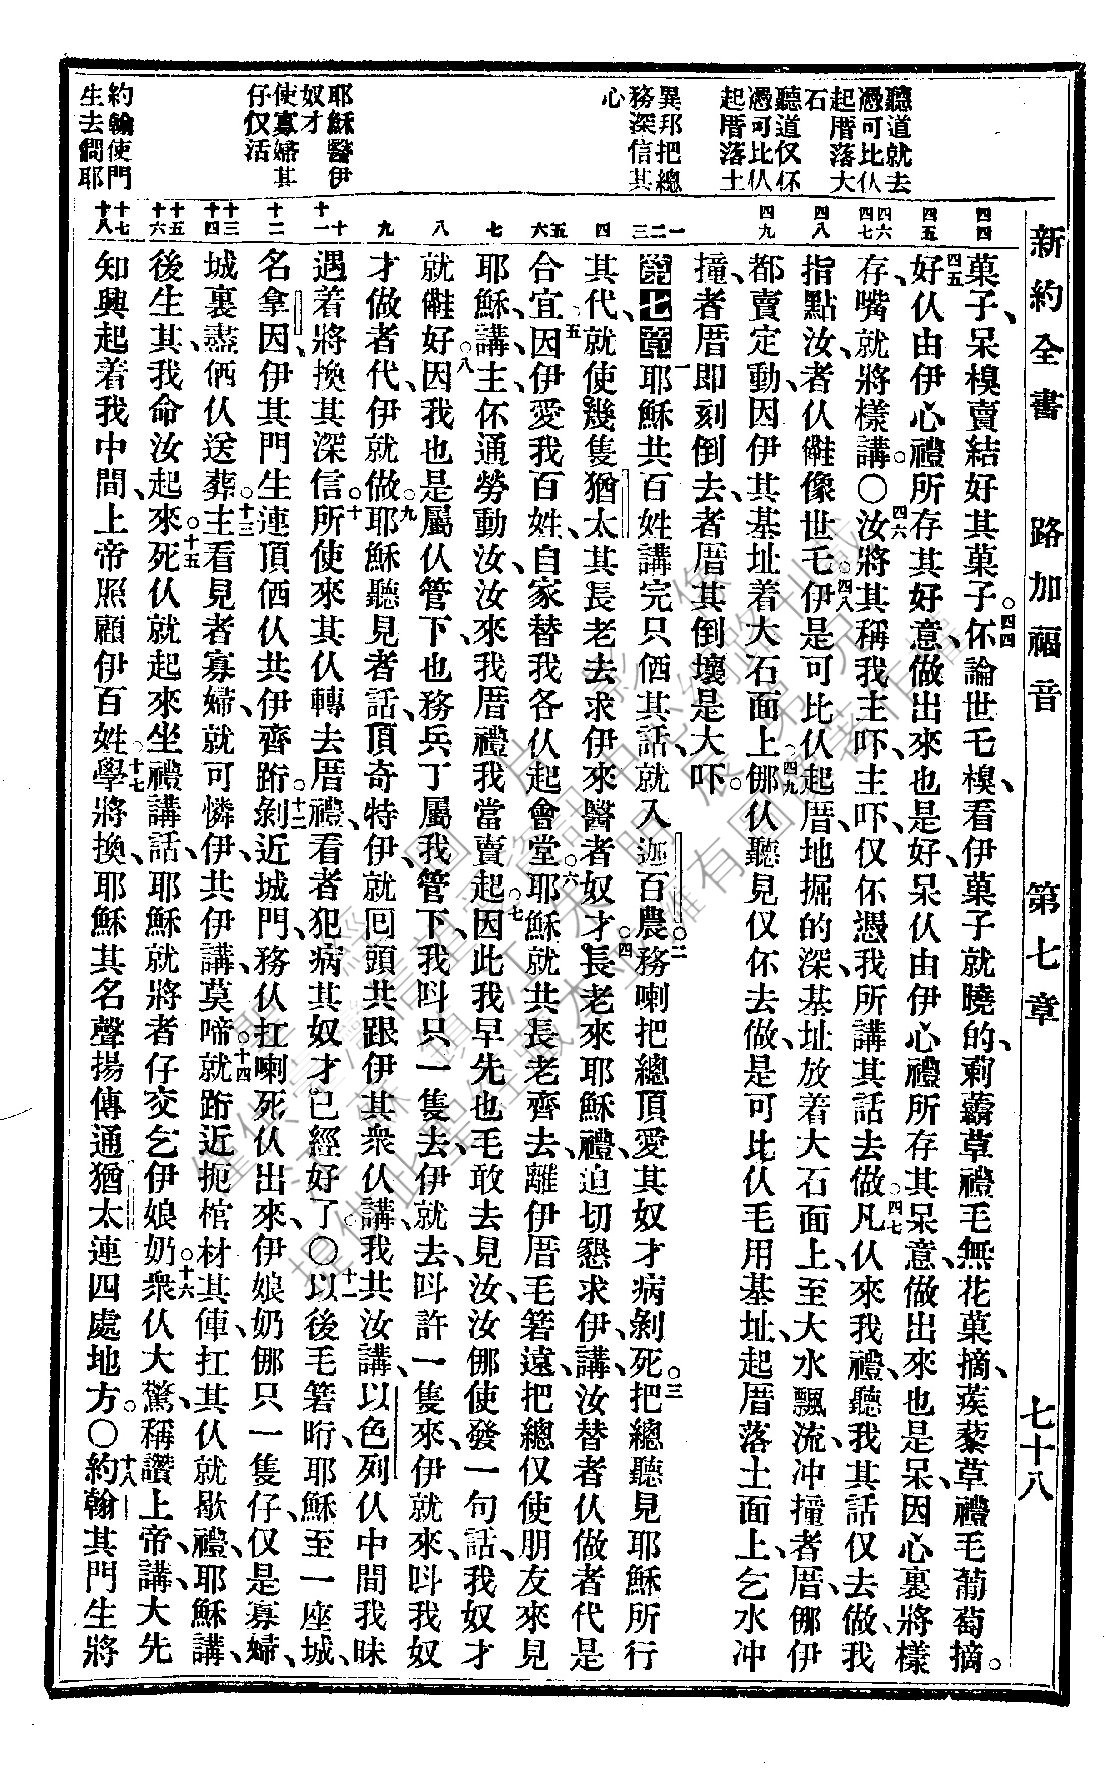 新約全書 路加福音 第七章 七十八
聽道就去
憑可比仈
起厝落大
石
聽道仅伓
憑可比仈
起厝落土
異邦把總
務深信其
心
耶穌醫伊
奴才
使寡婦其
仔仅活
約翰使門
生去問耶
四四
四五
四六
四七
四八
四九
一
二
三
四
五
六
七
八
九
十
十一
十二
十三
十四
十五
十六
十七
十八
菓子、呆樑賣結好其菓子。四四伓論世乇樑、看伊菓子就曉的、莿藋草禮毛無花菓摘、蒺藜草禮毛葡萄摘。
四五好仈由伊心禮所存其好意做出來也是好、呆仈由伊心禮所存其呆意、做出來也是呆、因心裏將樣
存、嘴就將樣講。〇四六汝將其稱我主吓、主吓、仅伓憑我所講其話去做。四七凡仈來我禮、聽我其話仅去做、我
指點汝、者仈㒰像世乇。四八伊是可比仈起厝、地掘的深、基址放着大石面上、至大水飄流、冲撞者厝、㑚伊
都賣定動、因伊其基址着大石面上。四九㑚仈聽見仅伓去做、是可比仈毛用基址、起厝落土面上、乞水冲
撞、者厝即刻倒去、者厝其倒壞是大吓。
第七章 一耶穌共百姓講完只㑚其話、就入迦百農。二務喇把總頂愛其奴才病剝死。三把總聽見耶穌所行
其代、就使幾隻猶太其長老去求伊來醫者奴才。四長老來耶穌禮、迫切懇求伊、講、汝替者仈做者代是
合宜、五因伊愛我百姓、自家替我各仈起會堂。六耶穌就共長老齊去、離伊厝毛箬遠、把總仅使朋友來見
耶穌、講、主、伓通勞動汝、汝來我厝禮我當賣起。七因此我早先也毛敢去見汝、汝㑚使發一句話、我奴才
就㒰好。八因我也是屬仈管下、也務兵丁屬我管下、我呌只一隻去、伊就去、呌許一隻來、伊就來、呌我奴
才做者代、伊就做。九耶穌聽見者話、頂奇特伊、就囘頭共跟伊其衆仈講、我共汝講、以色列仈中間我昧
遇着將換其深信。十所使來其仈轉去厝禮、看者犯病其奴才、已經好了。〇十一以後毛箬晍、耶穌至一座城、
名拿因、伊其門生連頂㑚仈共伊齊跲。十二剝近城門、務仈扛喇死仈出來、伊娘奶㑚只一隻仔、仅是寡婦、
城裏盡㑚仈送葬。十三主看見者寡婦、就可憐伊、共伊講、莫啼。十四就跲近扼棺材其俥、扛其仈就歇禮、耶穌講、
後生其、我命汝起來。十五死仈就起來坐禮講話、耶穌就將者仔交乞伊娘奶。十六衆仈大驚、稱讚上帝、講、大先
知興起着我中間、上帝照顧伊百姓。十七學將換、耶穌其名聲揚傳通猶太連四處地方。〇十八約翰其門生將